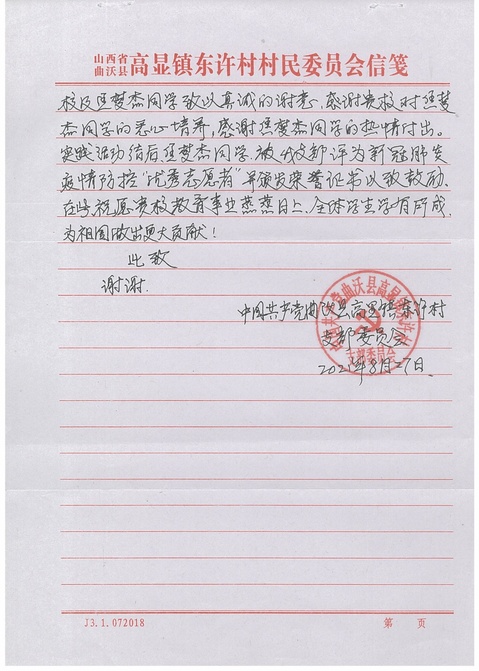 山西省曲沃县高显镇东许村村民委员会信笺
校及 梦杰同学致以真诚的谢意,感谢贵校对 梦
杰同学的悉心培养,感谢 梦杰同学的热情付出。
实践活动结后 梦杰同学,被我支部评为新冠肺炎
疫情防控"优秀志愿者"并颁发荣誉证书以致鼓励,
在此祝愿贵校教育事业蒸蒸日上,全体学生学有所成,
为祖国做出更大贡献!
此致
谢谢.
中国共产党曲沃县高显镇东许村
支部委员会
2021年8月27日.
支部委员会
J3.1.072018
第 页